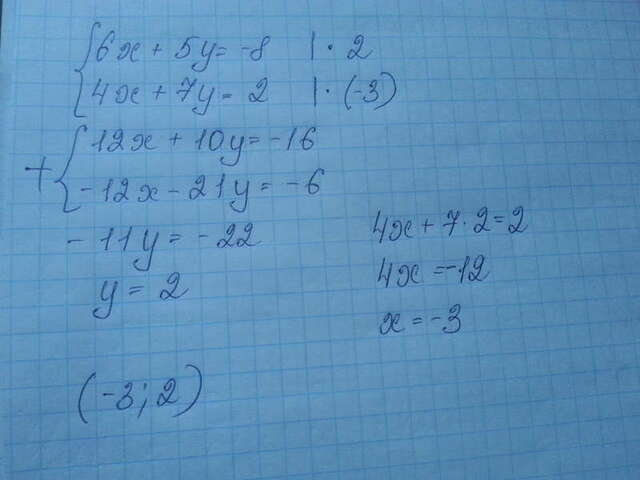 6x + 5y = -8 | · 2
4x + 7y = 2 | · (-3)
+ 12x + 10y = -16
-12x - 21y = -6
-11y = -22
y = 2
4x + 7 · 2 = 2
4x = -12
x = -3
(-3; 2)